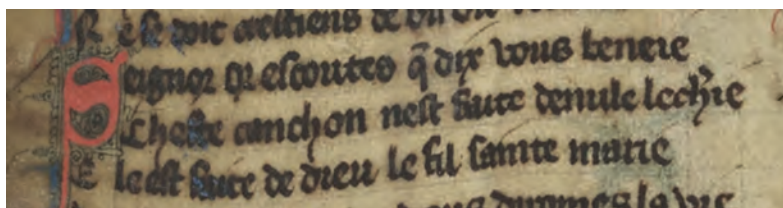 se doit crestiens de
Seignor or escoutes q̃ dix vous beneie
Cheste canchon nest faite denule lech̾ie
E le est faite de dieu le fil sainte marie